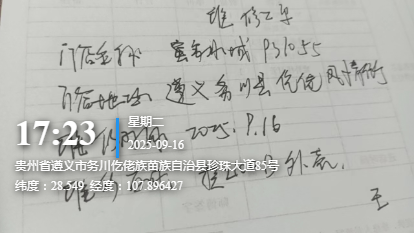 维修工单
门店名称 蜜雪冰城 P31055
门店地址 遵义务川县仡佬风情街
2025.9.16
17:23
星期二
2025-09-16
贵州省遵义市务川仡佬族苗族自治县珍珠大道85号
外壳.
纬度:28.549,经度:107.896427